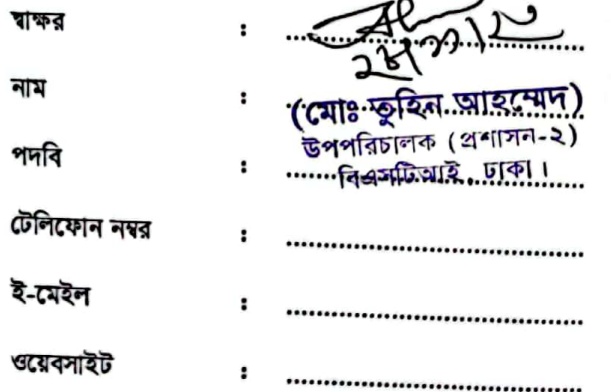 স্বাক্ষর :
নাম : (মোঃ তুহিন আহম্মেদ)
উপপরিচালক (প্রশাসন-২)
পদবি : বিএসটিআই, ঢাকা।
টেলিফোন নম্বর :
ই-মেইল :
ওয়েবসাইট :